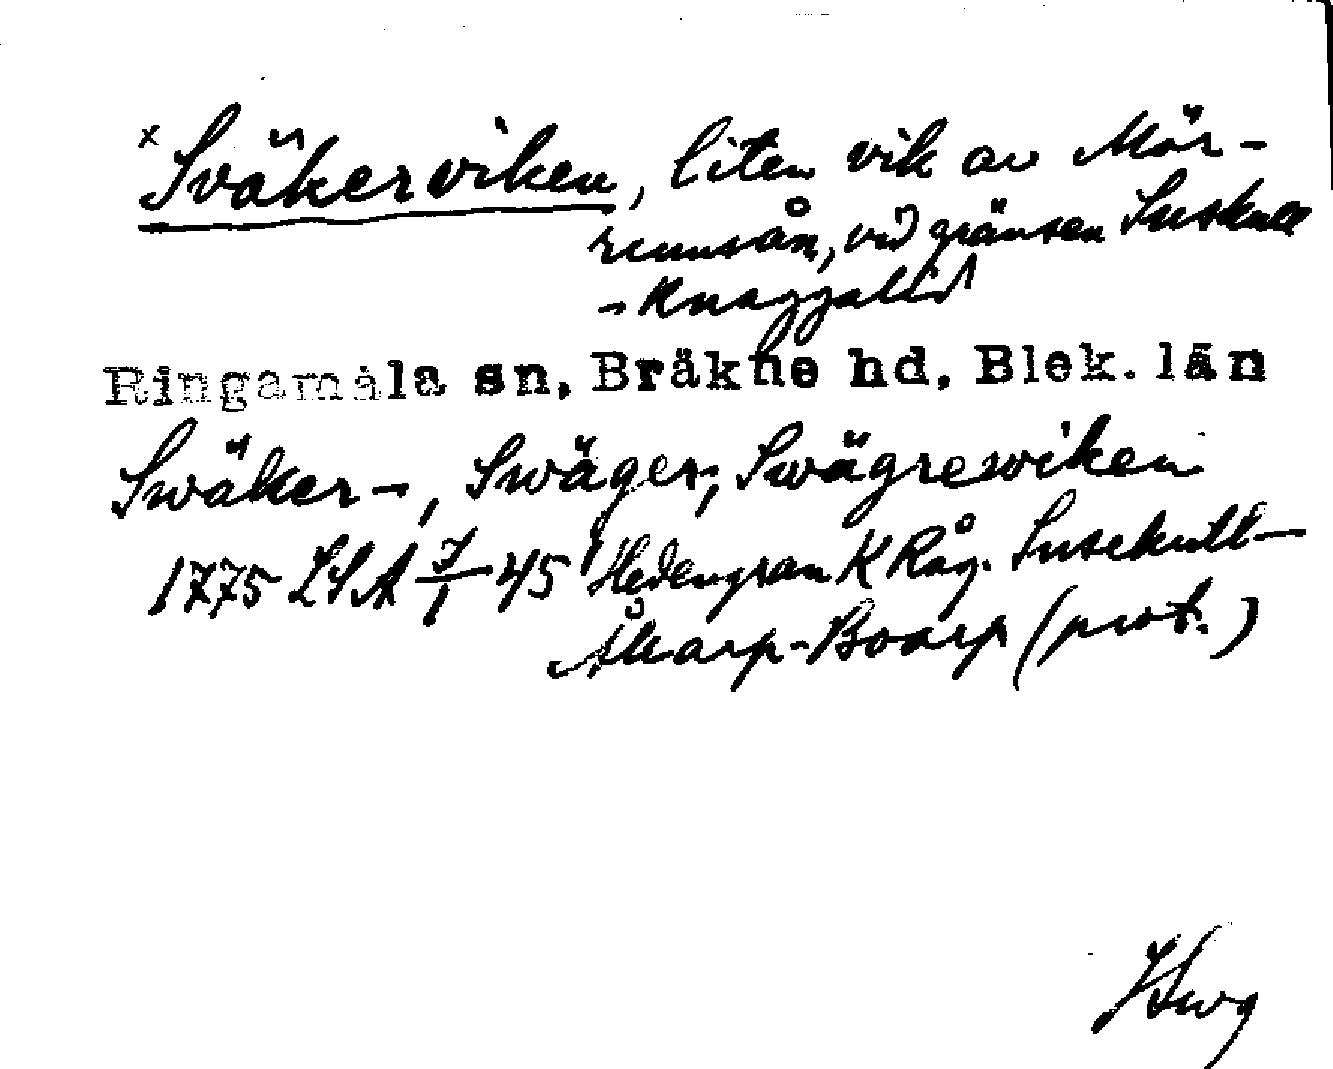 x Sväkerviken, liten vik av Mör-
rumsån, vid gränsen Susekull
- Knaggalid
Ringamåla sn, Bräkne hd, Blek. län
Swäker-, Swäger-, Swägrewiken
1775 LSA 7/1-45 Hedengran K Råg. Susekull-
Åkarp-Boarp (prot.)